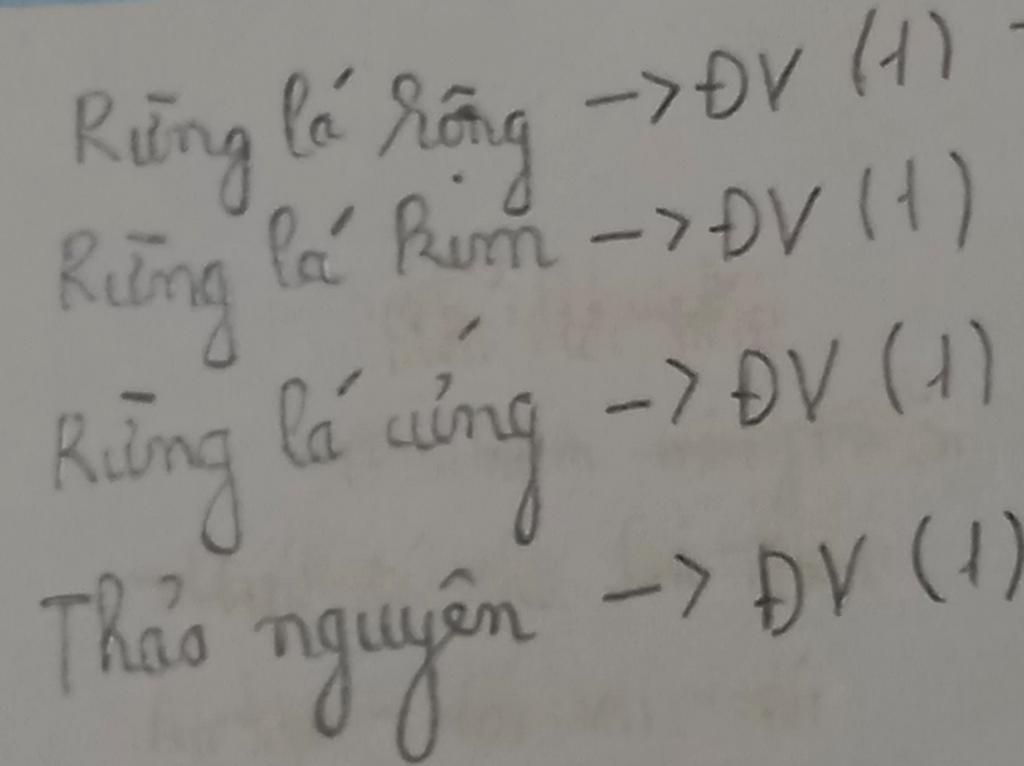 Rừng lá rộng -> ĐV (1)
Rừng lá kim -> ĐV (1)
Rừng lá cứng -> ĐV (1)
Thảo nguyên -> ĐV (1)